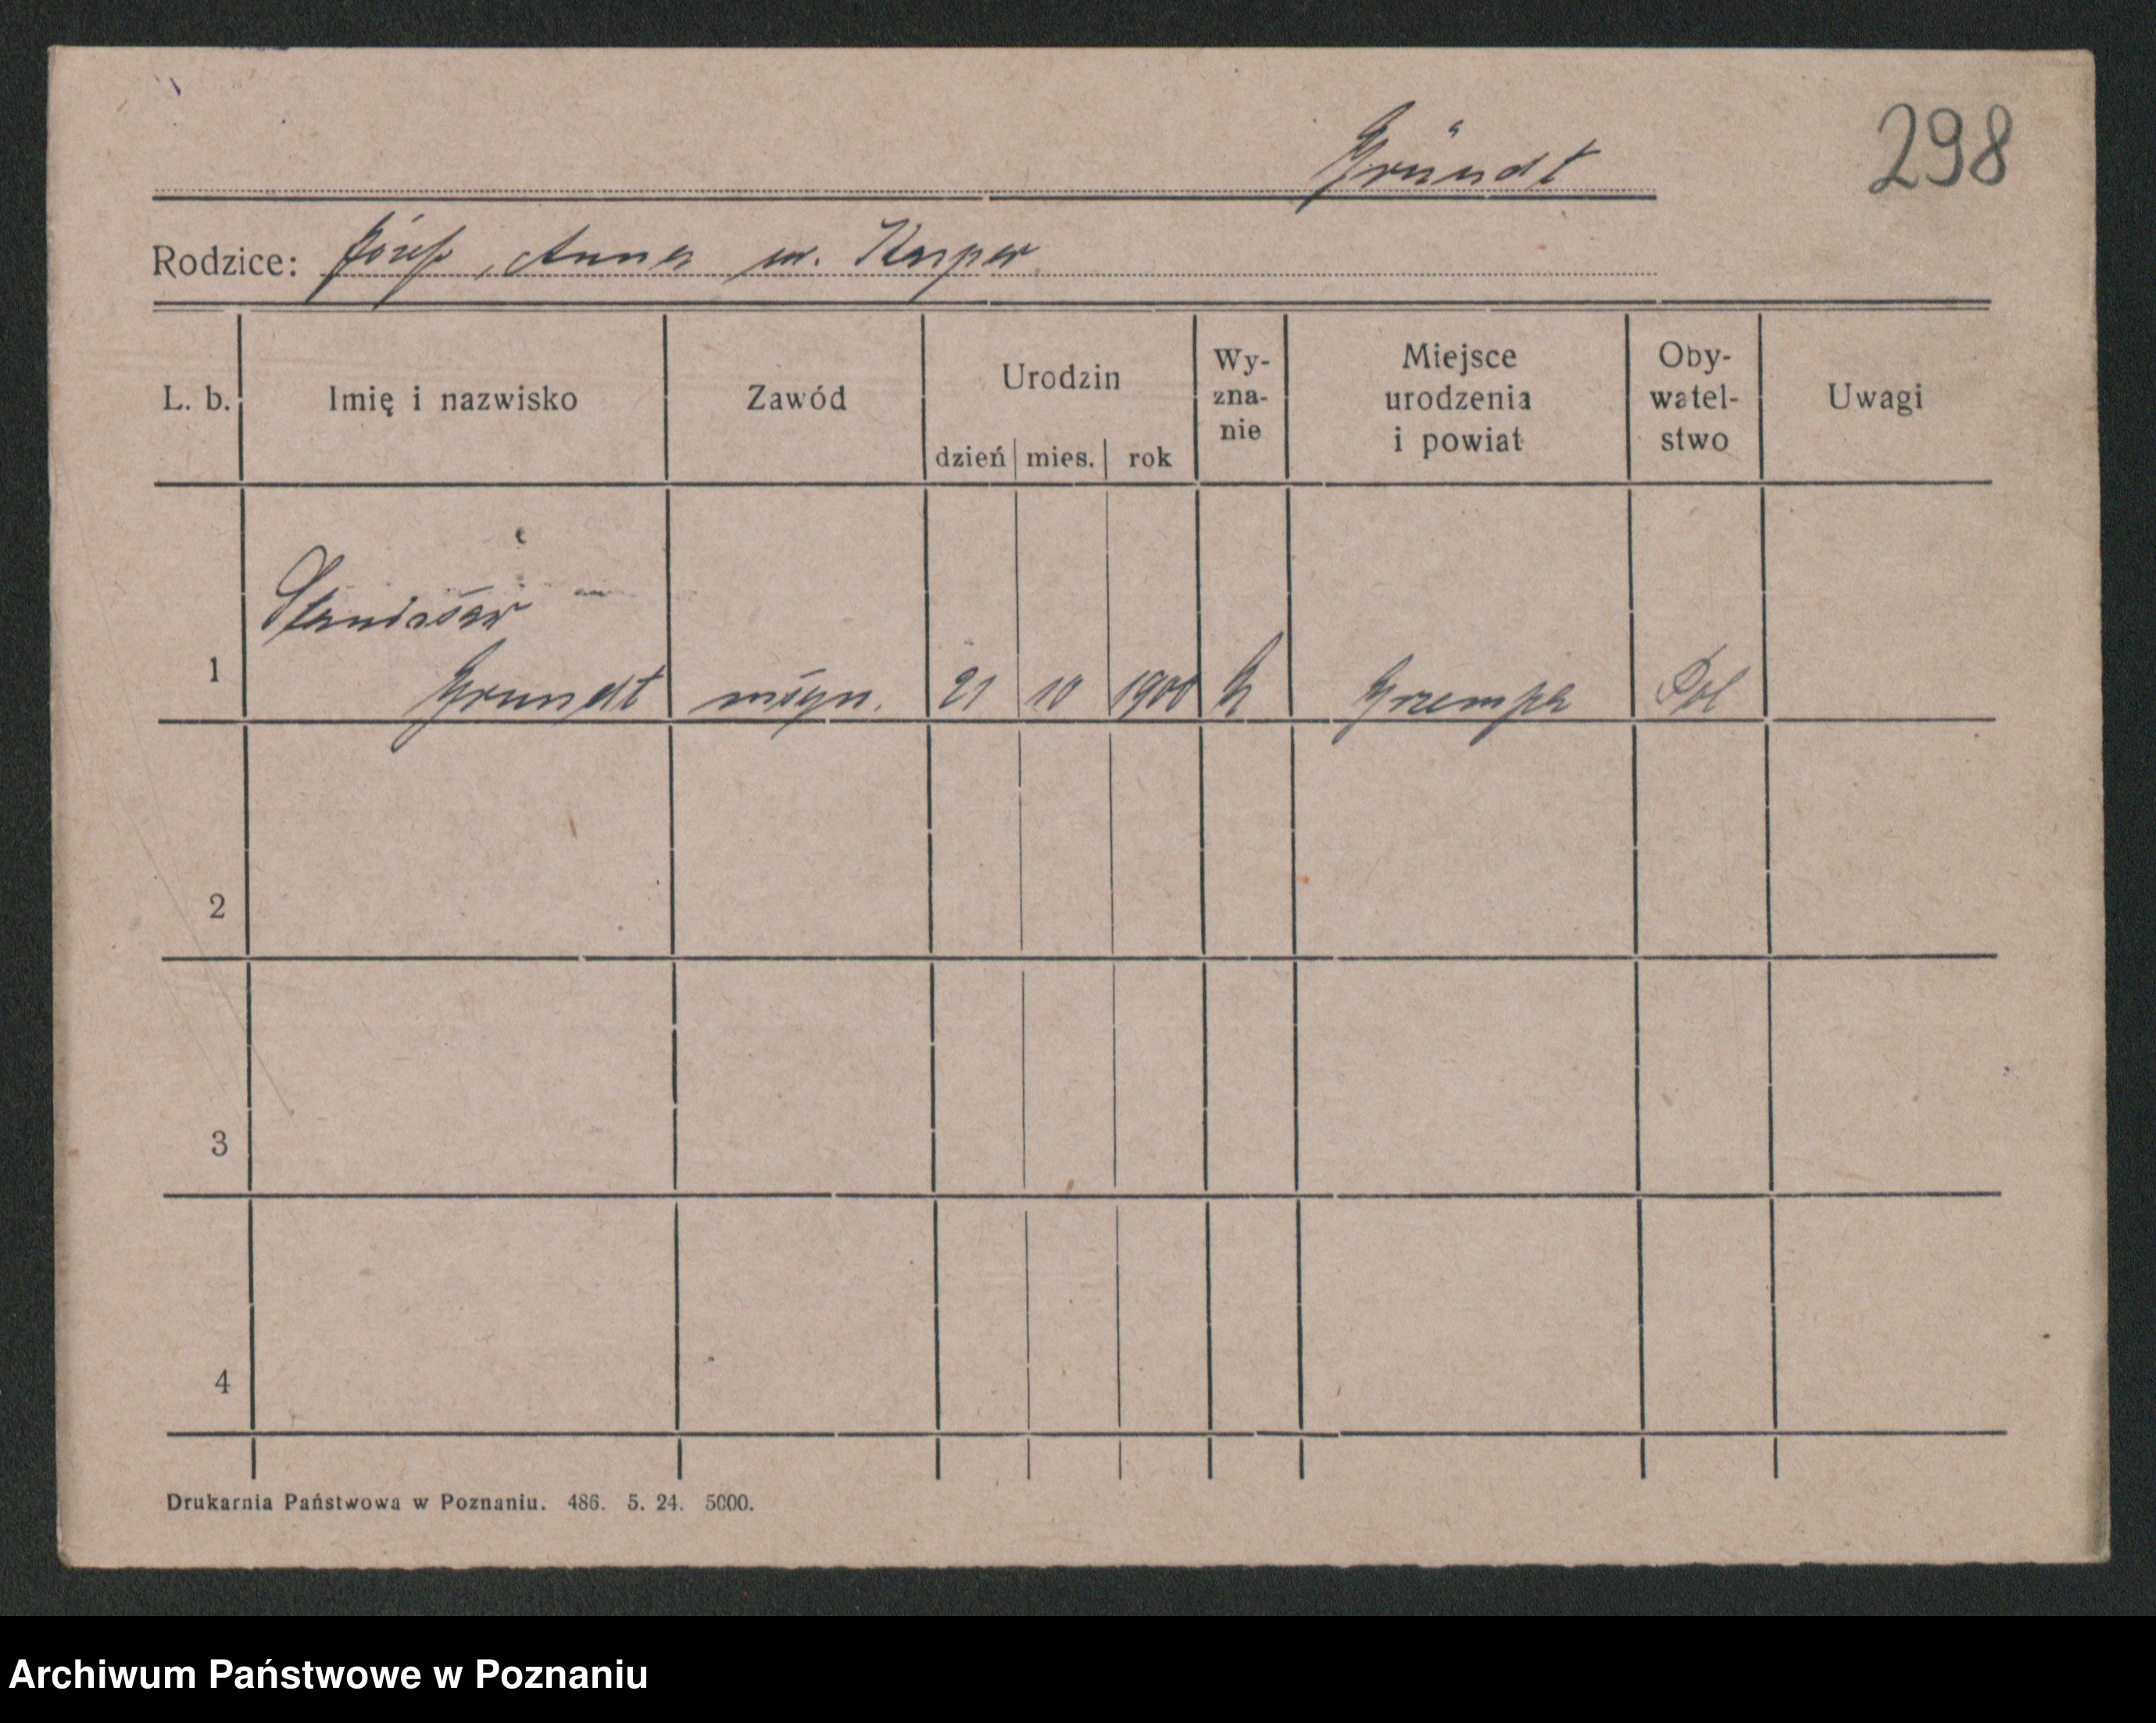 Gründt
298
Rodzice: Józef, Anna ur. Kasper
L. b. Imię i nazwisko Zawód Urodzin dzień mies. rok Wy-zna-nie Miejsce urodzenia i powiat Oby-watel-stwo Uwagi
Stanisław
1 Grundt młyn. 21 10 1900 k Grzempa Pol
2
3
4
Drukarnia Państwowa w Poznaniu. 486. 5. 24. 5000.
Archiwum Państwowe w Poznaniu